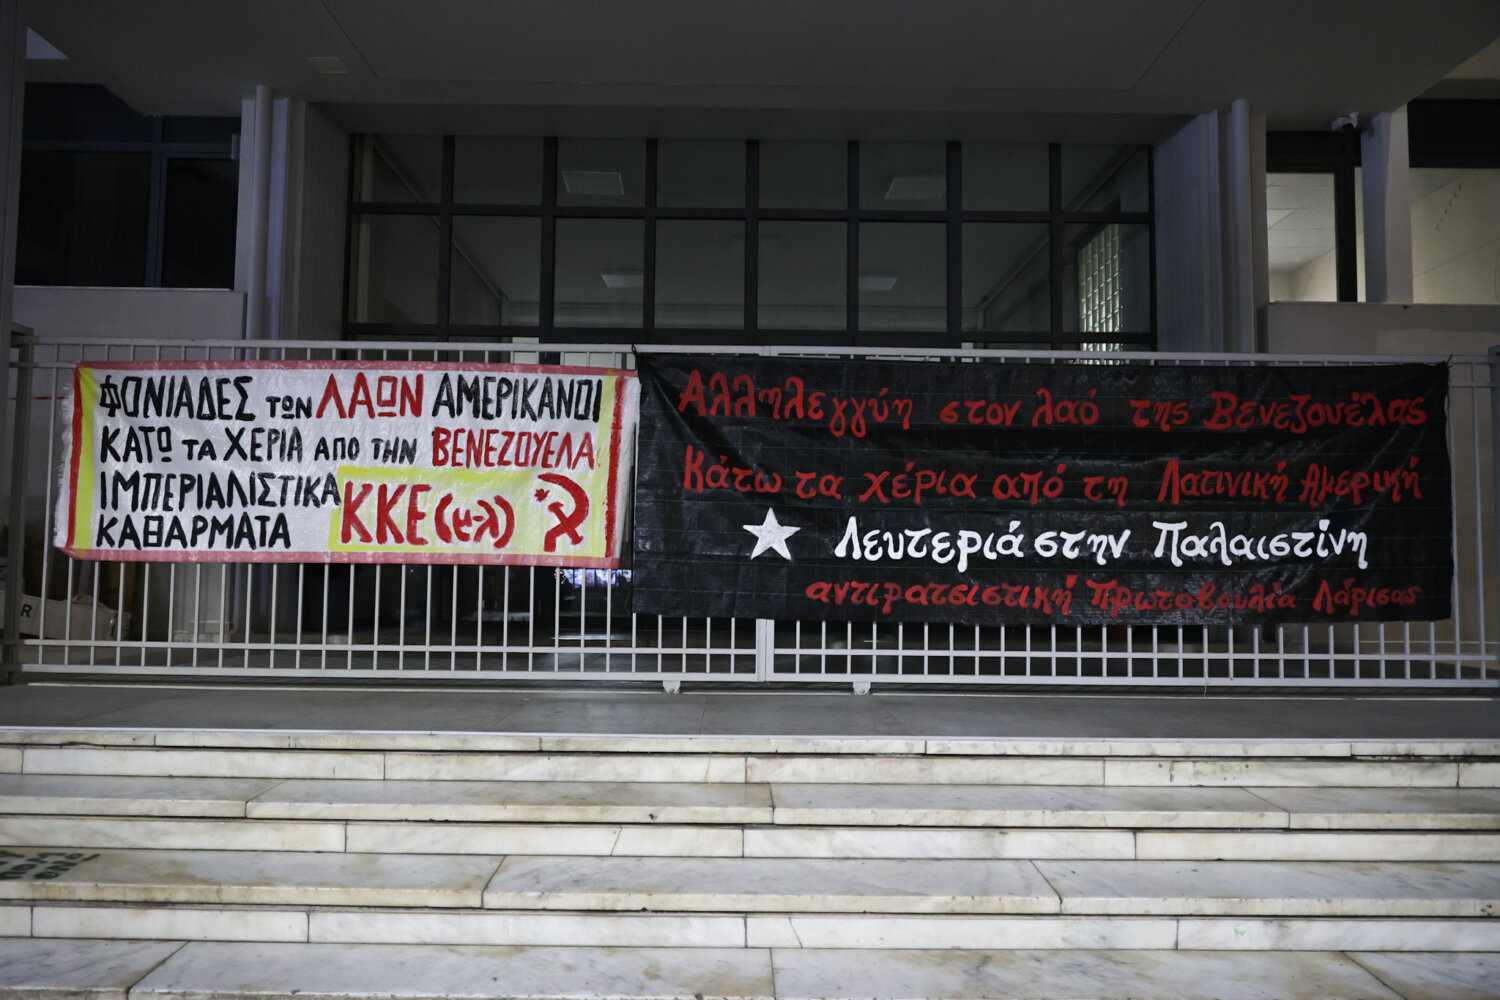 ΦΟΝΙΑΔΕΣ ΤΩΝ ΛΑΩΝ ΑΜΕΡΙΚΑΝΟΙ
ΚΑΤΩ ΤΑ ΧΕΡΙΑ ΑΠΟ ΤΗΝ ΒΕΝΕΖΟΥΕΛΑ
ΙΜΠΕΡΙΑΛΙΣΤΙΚΑ
ΚΑΘΑΡΜΑΤΑ
ΚΚΕ(μ-λ)
Αλληλεγγύη στον λαό της Βενεζουέλας
Κάτω τα χέρια από τη Λατινική Αμερική
Λευτεριά στην Παλαιστίνη
αντιρατσιστική Πρωτοβουλία Λάρισας